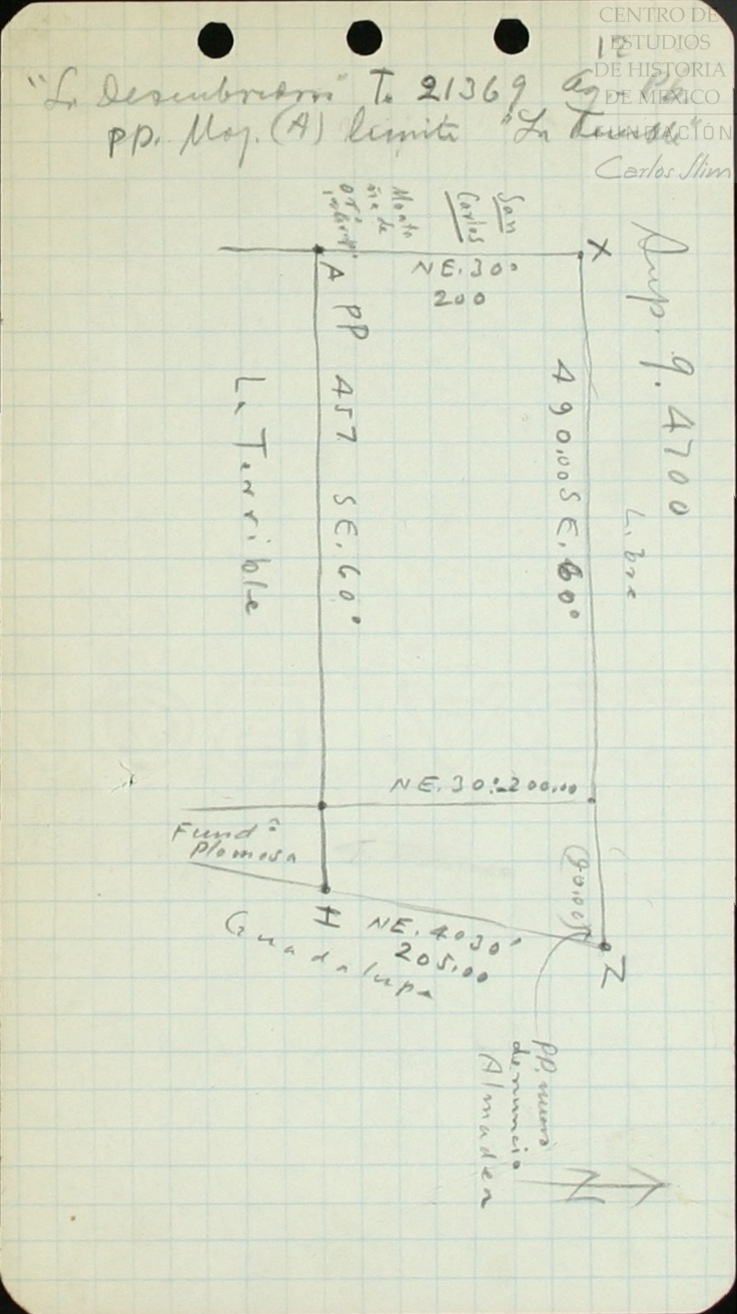 CENTRO DE
ESTUDIOS
DE HISTORIA
DE MÉXICO
FUNDACIÓN
Carlos Slim
12
"La Descubridora" T. 21369 Ag-Pb
pp. Moj. (A) limite "La Terrible"
Sup. 9.4700
Libre
San
Carlos
X
A
NE. 30°
200
PP 457 SE. 60°
490.00 SE. 60°
La Terrible
NE. 30°-200.00
Fund.ⁿ
Plomosa
H
Z
NE. 4030°
205.00
Guadalupe
PP. nuevo
denuncio
Almaden
N